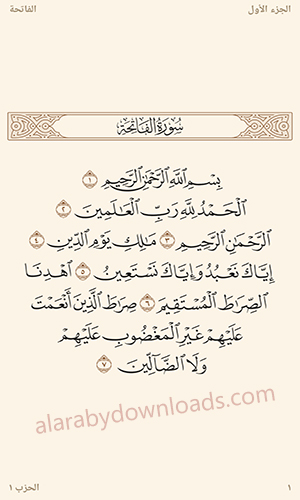 الجزء الأول
الفاتحة
سُورَةُ الفَاتِحَةِ
بِسْمِ ٱللَّهِ ٱلرَّحْمَٰنِ ٱلرَّحِيمِ ١
ٱلْحَمْدُ لِلَّهِ رَبِّ ٱلْعَٰلَمِينَ ٢
ٱلرَّحْمَٰنِ ٱلرَّحِيمِ ٣ مَٰلِكِ يَوْمِ ٱلدِّينِ ٤
إِيَّاكَ نَعْبُدُ وَإِيَّاكَ نَسْتَعِينُ ٥ ٱهْدِنَا
ٱلصِّرَٰطَ ٱلْمُسْتَقِيمَ ٦ صِرَٰطَ ٱلَّذِينَ أَنْعَمْتَ
عَلَيْهِمْ غَيْرِ ٱلْمَغْضُوبِ عَلَيْهِمْ
وَلَا ٱلضَّآلِّينَ ٧
alarabydownloads.com
١
الحزب ١